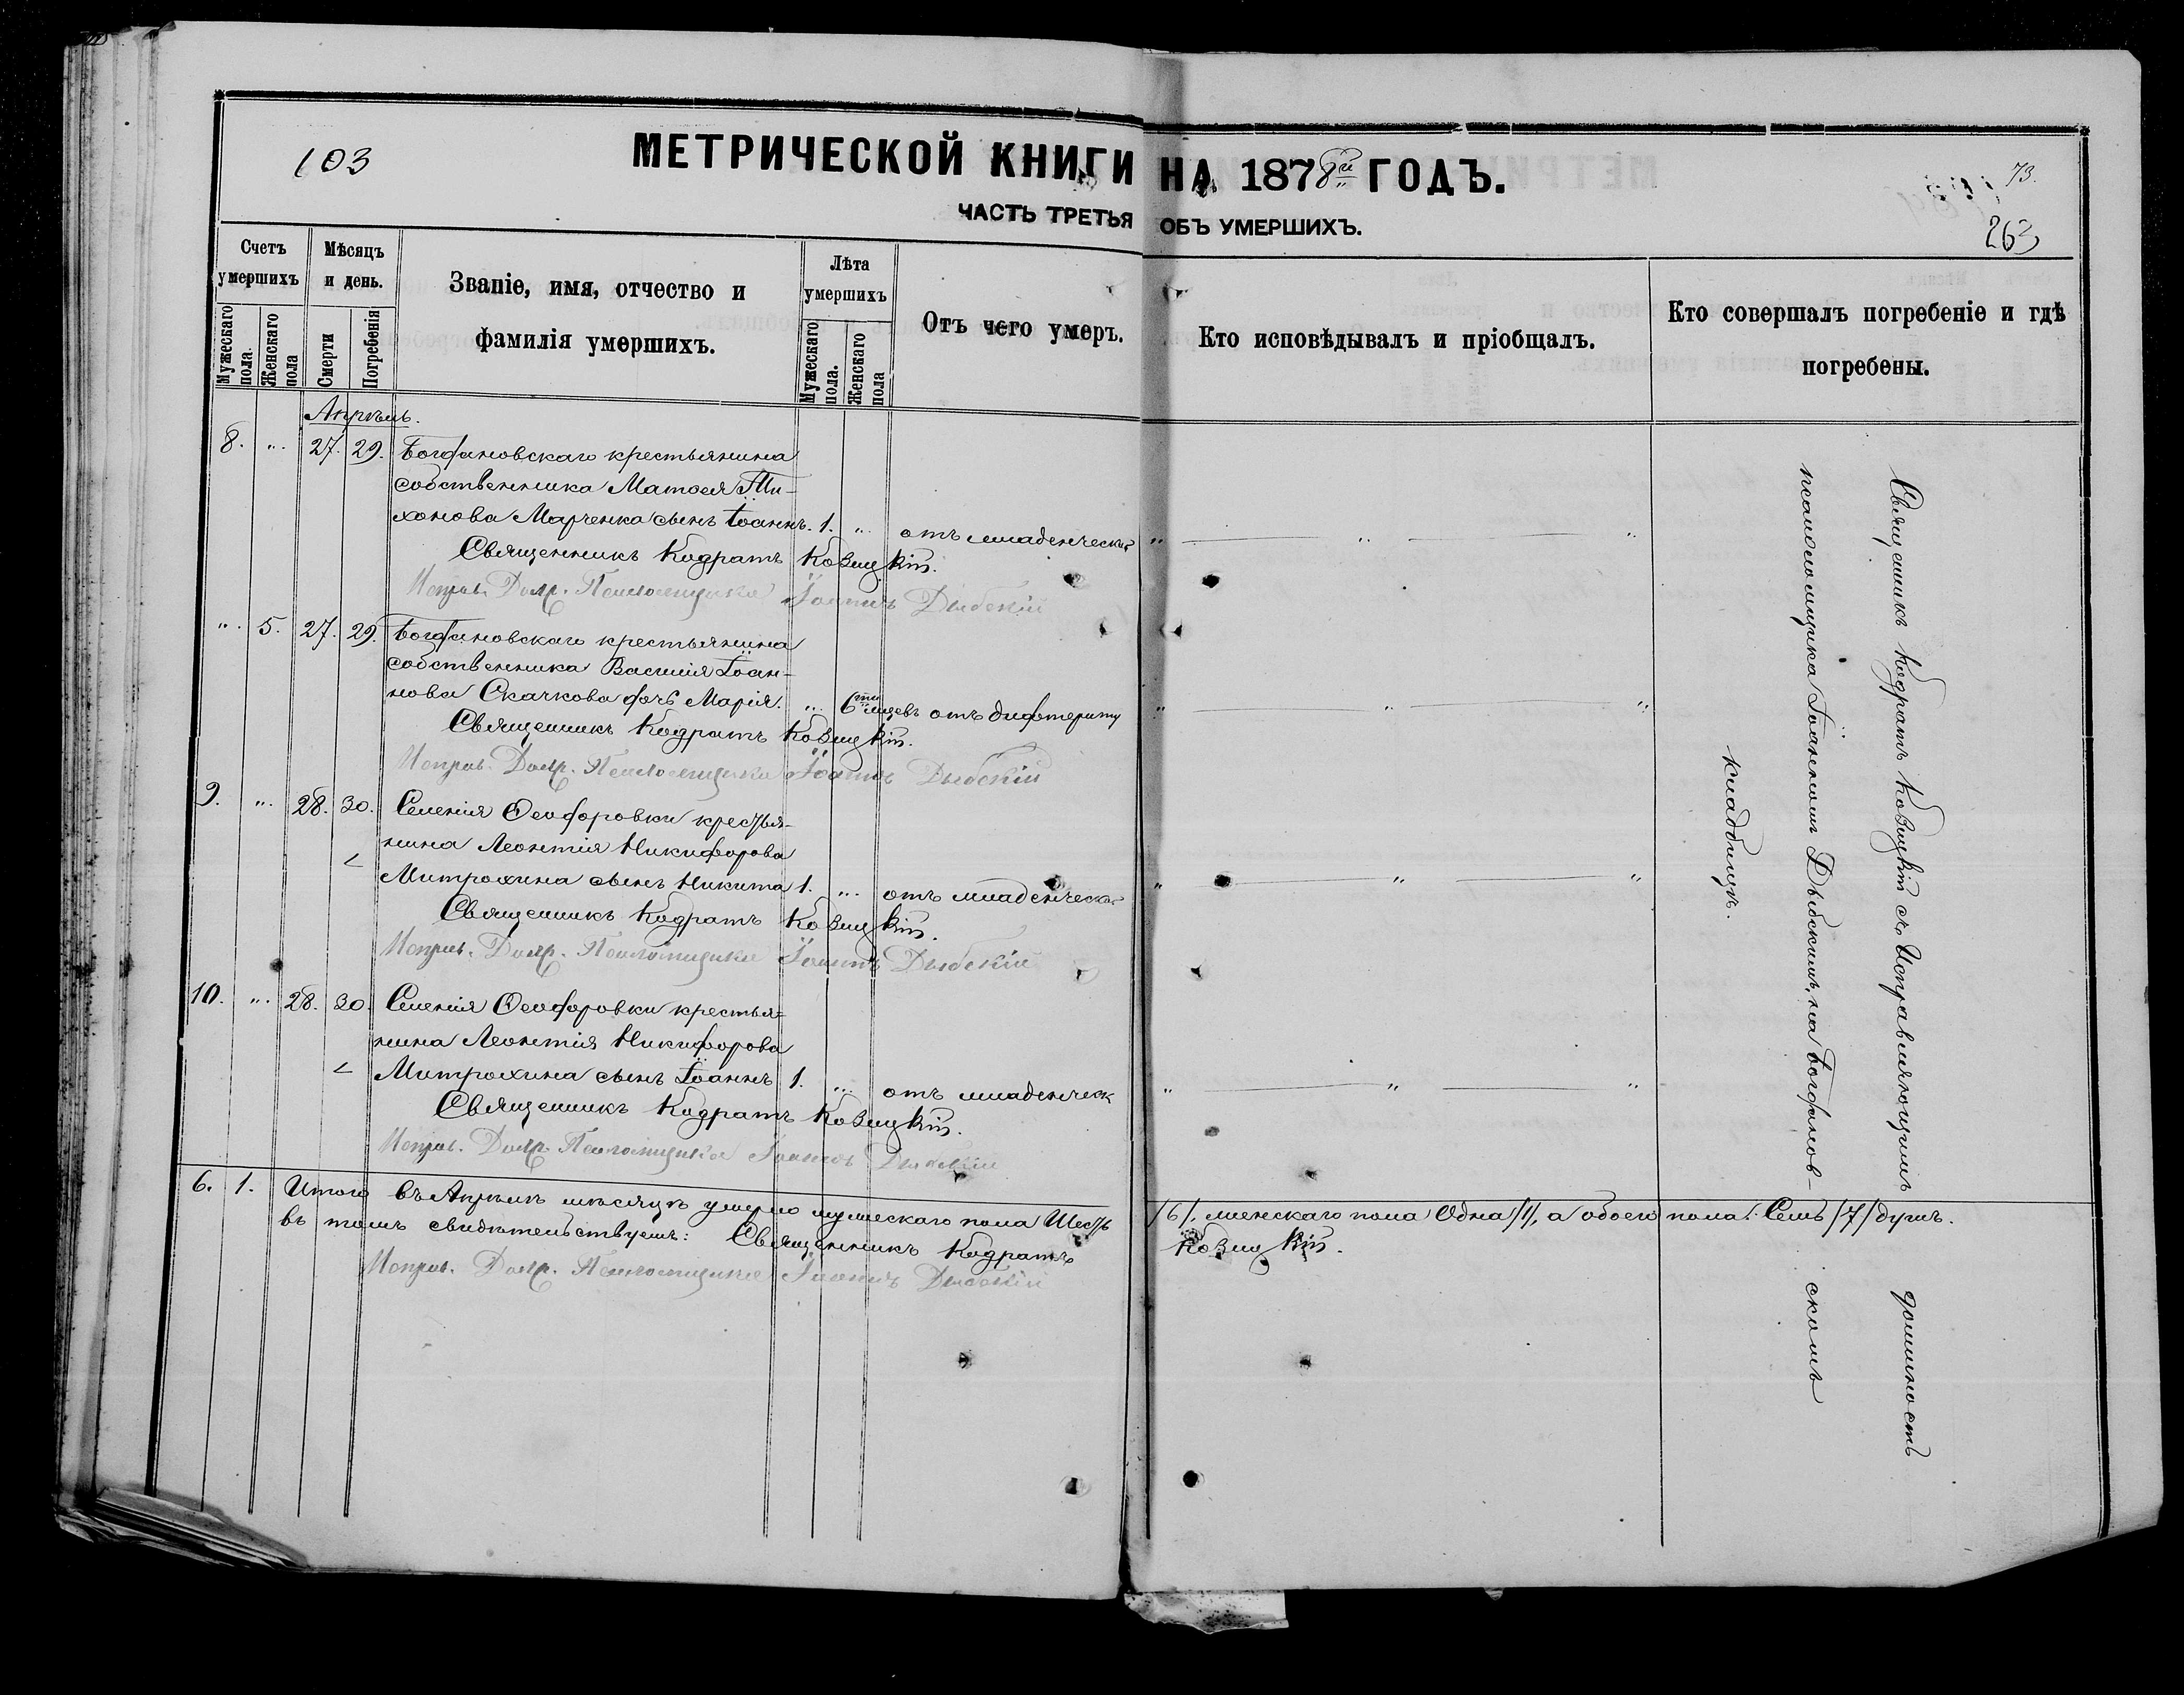 103
МЕТРИЧЕСКОЙ КНИГИ НА 1878й ГОДЪ.
73.
263
ЧАСТЬ ТРЕТЬЯ ОБЪ УМЕРШИХЪ.
Счетъ умершихъ
Мѣсяцъ и день.
Званіе, имя, отчество и фамилія умершихъ.
Лѣта умершихъ
Отъ чего умеръ.
Кто исповѣдывалъ и пріобщалъ.
Кто совершалъ погребеніе и гдѣ погребены.
Мужескаго пола.
Женскаго пола
Смерти
Погребенія
Мужескаго пола.
Женскаго пола
Апрѣль.
8. „ 27. 29. Богдановскаго крестьянина
собственника Матѳея Ти-
хонова Марченка сынъ Іоаннъ. 1. „ отъ младенческ
Священникъ Кодратъ Ковицкій.
Исправ. Долж. Псаломщика Іоаннъ Дыбскій
„ 5. 27. 29. Богдановскаго крестьянина
собственника Василія Іоан-
нова Скачкова дочь Марія. „ 6ти мцевъ отъ дифтериту
Священникъ Кодратъ Ковицкій.
Исправ. Долж. Псаломщика Іоаннъ Дыбскій
9. „ 28. 30. Селенія Ѳеодоровки крестья-
нина Леонтія Никифорова
Митрохина сынъ Никита 1. „ отъ младенческ
Священникъ Кодратъ Ковицкій.
Исправ. Долж. Псаломщика Іоаннъ Дыбскій
10. „ 28. 30. Селенія Ѳеодоровки крестья-
нина Леонтія Никифорова
Митрохина сынъ Іоаннъ 1. „ отъ младенческ
Священникъ Кодратъ Ковицкій.
Исправ. Долж. Псаломщика Іоаннъ Дыбскій
Священникъ Кодратъ Ковицкій съ Исправляющимъ должность
псаломщика Іоанномъ Дыбскимъ, на Богдановскомъ
кладбищѣ.
6. 1. Итого въ Апрѣлѣ мѣсяцѣ умерло мужескаго пола Шесть /6/, женскаго пола Одна /1/, а обоего пола: Семь /7/ душъ.
въ томъ свидѣтельствуемъ: Священникъ Кодратъ Ковицкій.
Исправ. Долж. Псаломщика Іоаннъ Дыбскій